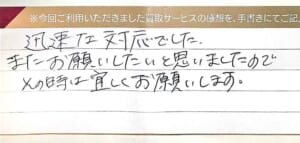 ※今回ご利用いただきました買取サービスの感想を、手書きにてご記
迅速な対応でした.
またお願いしたいと思いましたので
その時は宜しくお願いします。